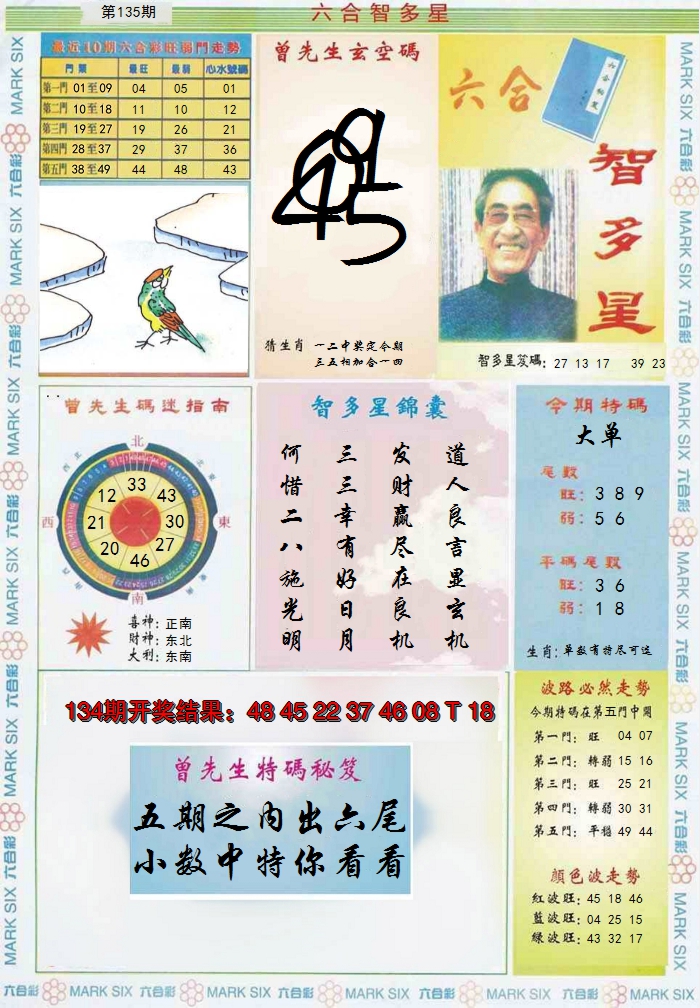 第135期
六合智多星
最近10期六合彩旺弱門走勢
門類 最旺 最弱 心水號碼
第一門 01至09 04 05 01
第二門 10至18 11 10 12
第三門 19至27 19 26 21
第四門 28至37 29 37 36
第五門 38至49 44 48 43
曾先生玄空碼
猜生肖 一二中奖定今期
三五相加合一四
六合
六合秘笈
智多星
智多星笈碼: 27 13 17 39 23
曾先生碼迷指南
北
西北
東北
西
東
南
33
43
30
27
46
20
21
12
喜神: 正南
财神: 东北
大利: 东南
智多星錦囊
道人良言显玄机
发财赢尽在良机
三三幸有好日月
何惜二八施光明
今期特碼
大单
尾數
旺: 3 8 9
弱: 5 6
平碼尾數
旺: 3 6
弱: 1 8
生肖: 单数有特尽可选
134期开奖结果：48 45 22 37 46 08 T 18
曾先生特碼秘笈
五期之内出六尾
小数中特你看看
波路必然走勢
今期特碼在第五門中開
第一門: 旺 04 07
第二門: 轉弱 15 16
第三門: 旺 25 21
第四門: 轉弱 30 31
第五門: 平穩 49 44
顔色波走勢
紅波旺: 45 18 46
藍波旺: 04 25 15
綠波旺: 43 32 17
MARK SIX 六合彩